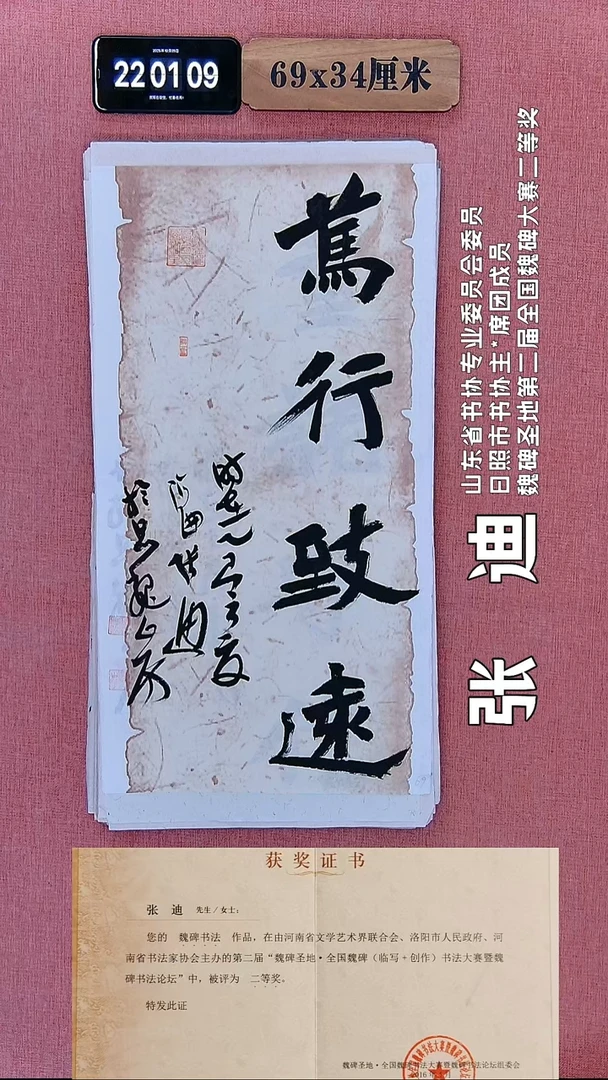 22 01 09
69x34厘米
篤行致遠
时在乙巳之夏
山东省书协专业委员会委员
日照市书协主*席团成员
魏碑圣地第二届全国魏碑大赛二等奖
张 迪
获奖证书
张 迪 先生/女士:
您的 魏碑书法 作品，在由河南省文学艺术界联合会、洛阳市人民政府、河
南省书法家协会主办的第二届“魏碑圣地·全国魏碑（临写+创作）书法大赛暨魏
碑书法论坛”中，被评为 二等奖。
特发此证
魏碑圣地·全国魏碑书法大赛暨魏碑书法论坛组委会